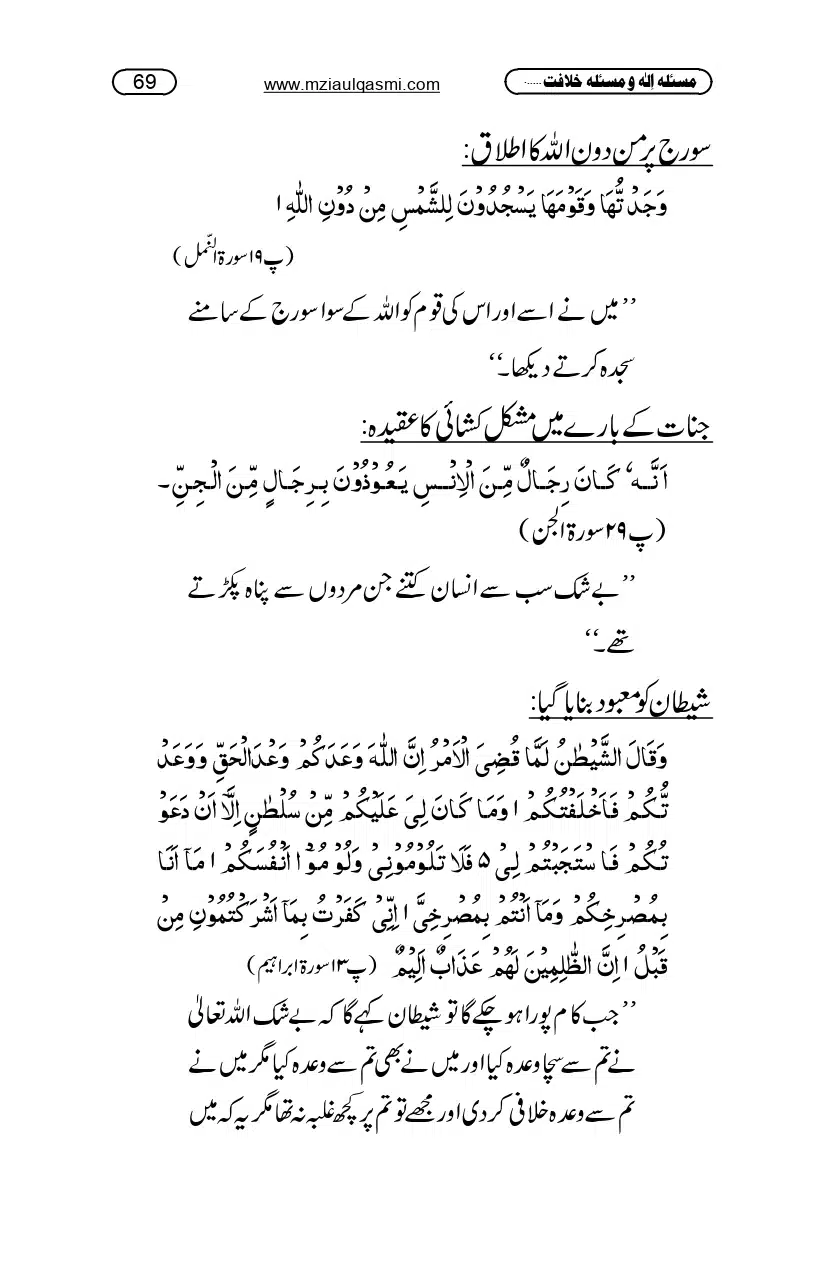 69
www.mziaulqasmi.com
مسئلہ اِلٰہ و مسئلہ خلافت ......
سورج پر من دون اللہ کا اطلاق:
وَجَدْ تُّهَا وَقَوْمَهَا يَسْجُدُوْنَ لِلشَّمْسِ مِنْ دُوْنِ اللّٰهِ ا
(پ۱۹سورۃ النّمل)
’’میں نے اسے اور اس کی قوم کو اللہ کے سوا سورج کے سامنے
سجدہ کرتے دیکھا۔‘‘
جنات کے بارے میں مشکل کشائی کا عقیدہ:
اَنَّـهٗ كَـانَ رِجَـالٌ مِّـنَ الْاِنْـسِ يَـعُـوْذُوْنَ بِـرِجَـالٍ مِّـنَ الْـجِـنِّ۔
(پ۲۹سورۃ الجن)
’’بے شک سب سے انسان کتنے جن مردوں سے پناہ پکڑتے
تھے۔‘‘
شیطان کو معبود بنایا گیا:
وَقَالَ الشَّيْطٰنُ لَمَّا قُضِىَ الْاَمْرُ اِنَّ اللّٰهَ وَعَدَكُمْ وَعْدَالْحَقِّ وَوَعَدْ
تُّكُمْ فَاَخْلَفْتُكُمْ ا وَمَا كَانَ لِىَ عَلَيْكُمْ مِّنْ سُلْطٰنٍ اِلَّآ اَنْ دَعَوْ
تُكُمْ فَا سْتَجَبْتُمْ لِىْ ۵ فَلَا تَلُوْمُوْنِىْ وَلُوْ مُوْٓا اَنْفُسَكُمْ ا مَآ اَنَا
بِمُصْرِخِكُمْ وَمَآ اَنْتُمْ بِمُصْرِخِىَّ ا اِنِّىْ كَفَرْتُ بِمَآ اَشْرَ كْتُمُوْنِ مِنْ
قَبْلُ ا اِنَّ الظّٰلِمِيْنَ لَهُمْ عَذَابٌ اَلِيْمٌ (پ۱۳سورۃ ابراہیم)
’’جب کام پورا ہو چکے گا تو شیطان کہے گا کہ بے شک اللہ تعالیٰ
نے تم سے سچا وعدہ کیا اور میں نے بھی تم سے وعدہ کیا مگر میں نے
تم سے وعدہ خلافی کر دی اور مجھے تو تم پر کچھ غلبہ نہ تھا مگر یہ کہ میں